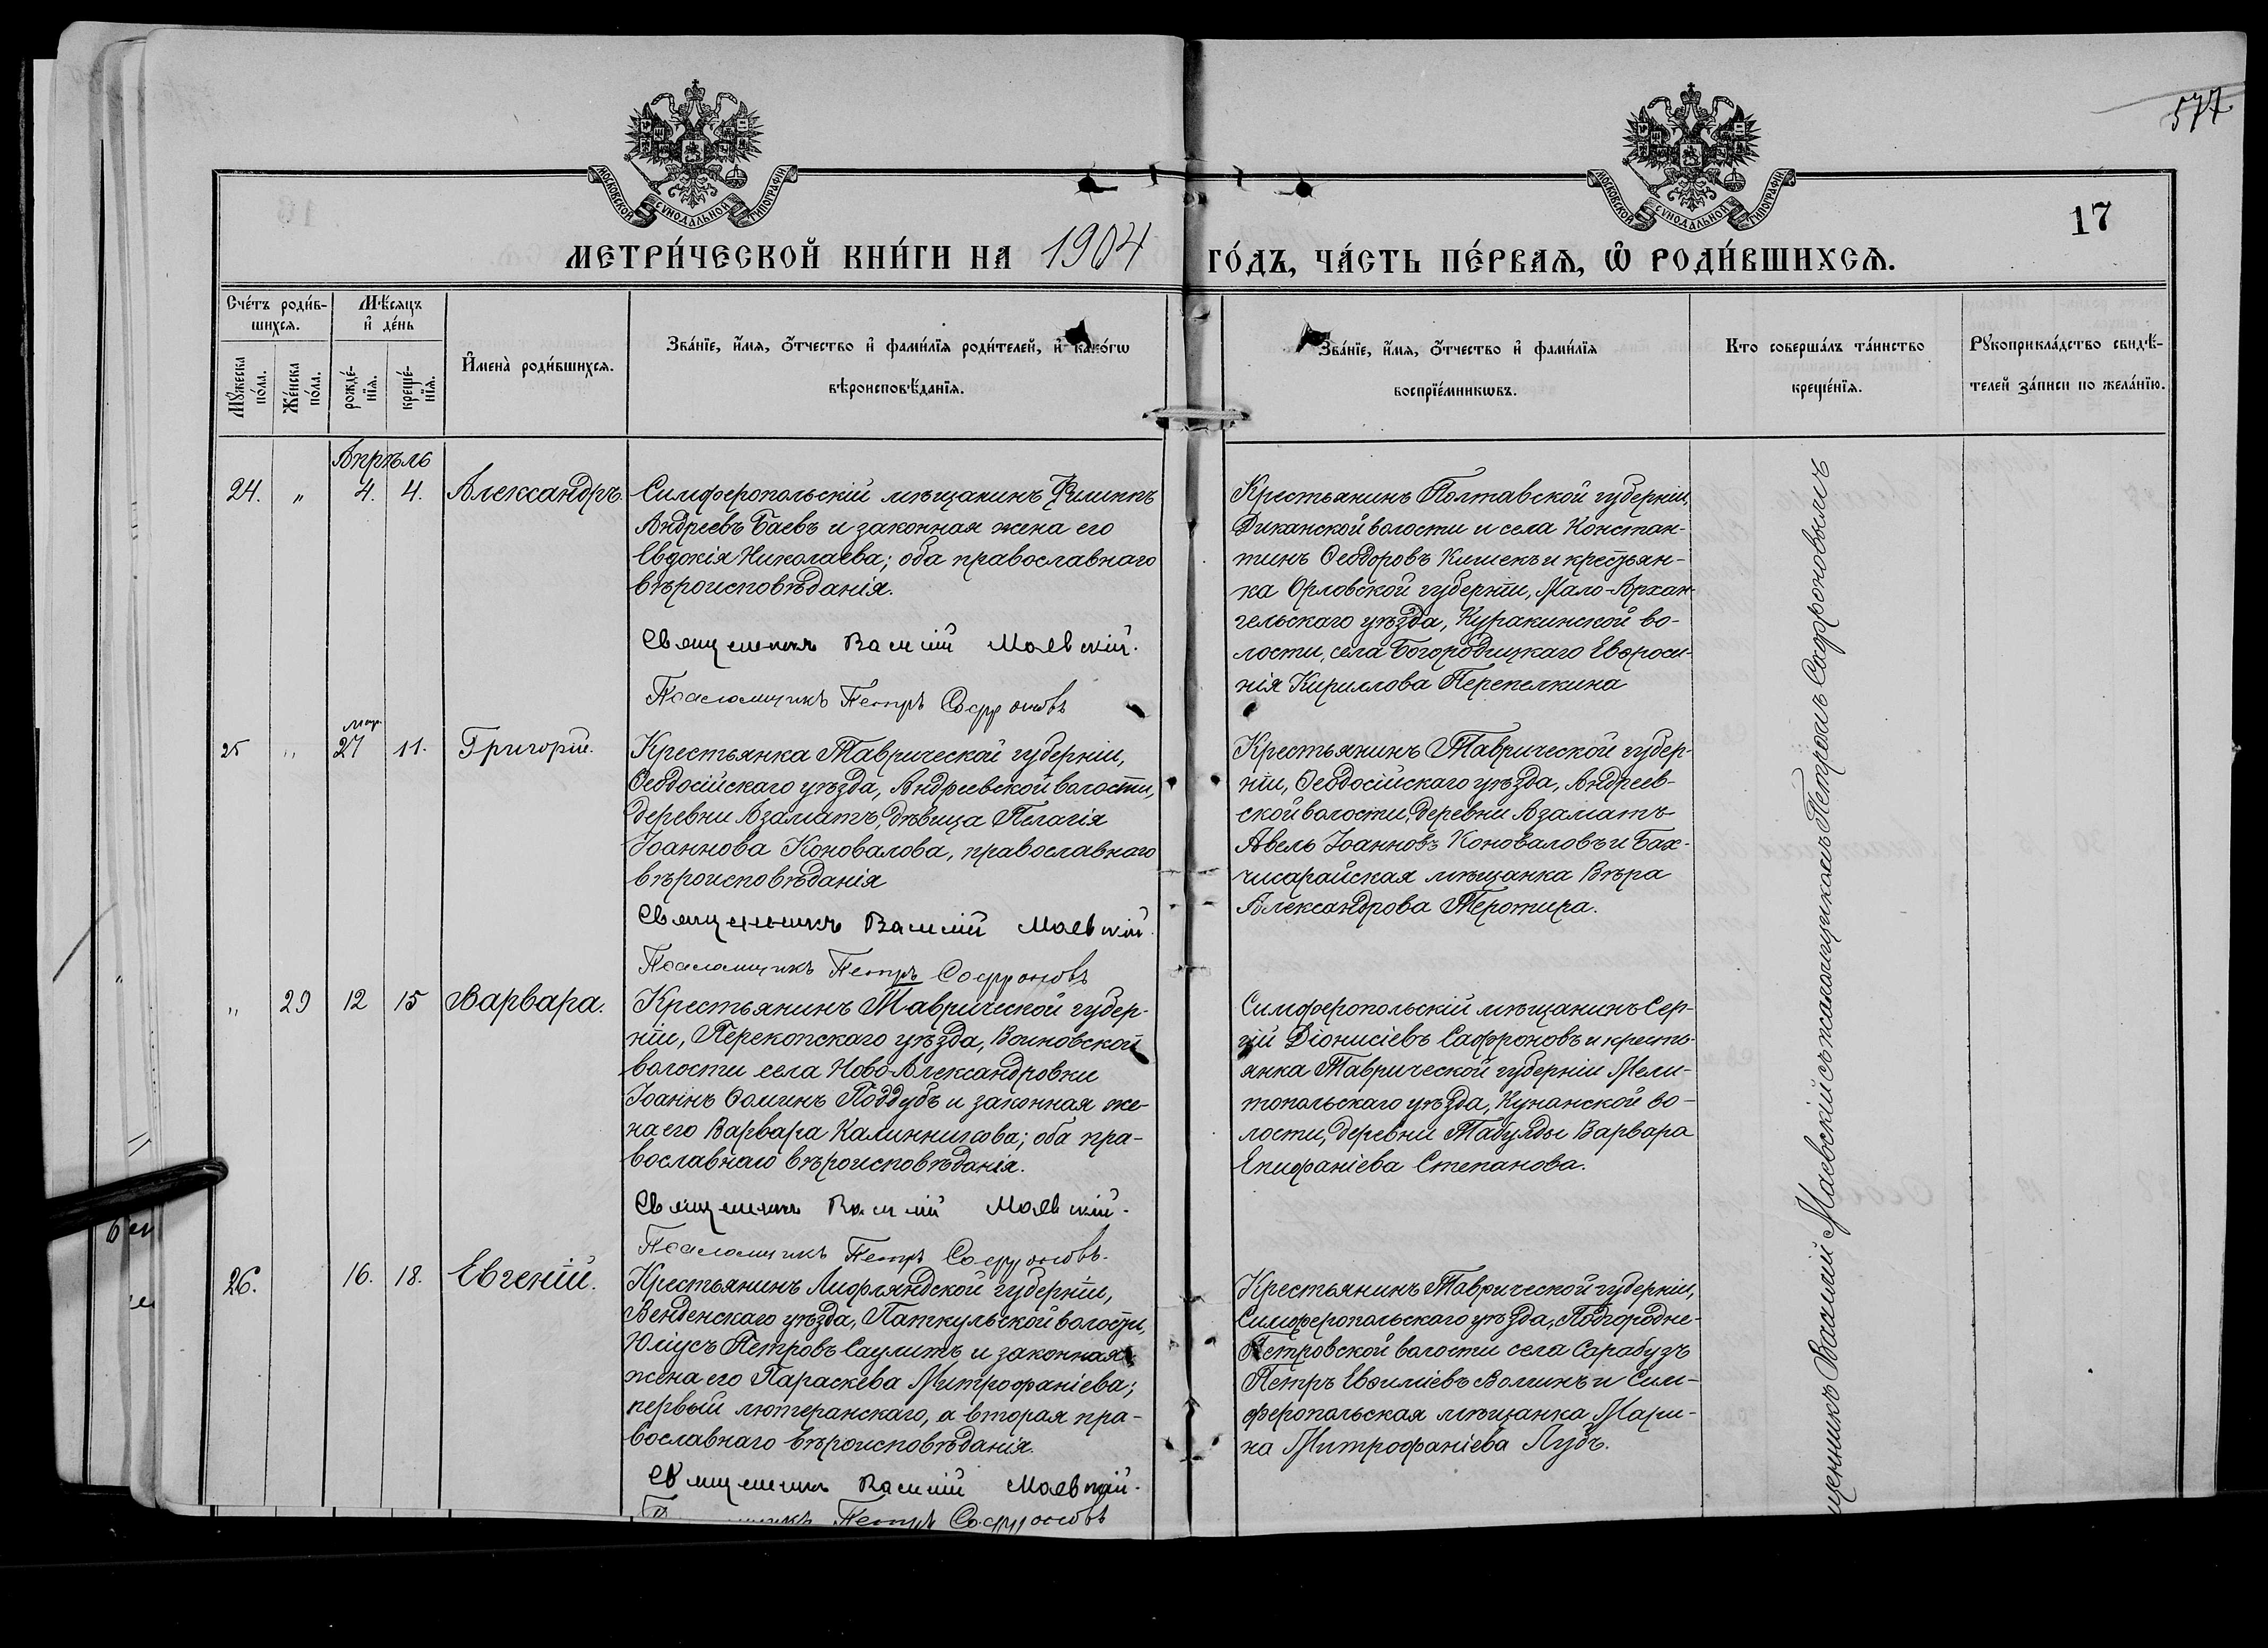 577
МОСКОВСКОЙ СѴНОДАЛЬНОЙ ТИПОГРАФІИ
МОСКОВСКОЙ СѴНОДАЛЬНОЙ ТИПОГРАФІИ
17
МЕТРИ́ЧЕСКОЙ КНИ́ГИ НА 1904 ГО́ДЪ, ЧА́СТЬ ПЕ́РВАѦ, Ѡ҆ РОДИ́ВШИХСѦ.
Сче́тъ роди́в-
шихсѧ.
Мꙋ́жеска
по́ла.
Же́нска
по́ла.
Мѣ́сѧцъ
и҆ де́нь
рожде́-
нїѧ.
креще́-
нїѧ.
И҆мена̀ роди́вшихсѧ.
Зва́нїе, и҆́мѧ, ѻ҆́тчество и҆ фами́лїѧ роди́телей, и҆ како́гѡ
вѣроисповѣ́данїѧ.
Зва́нїе, и҆́мѧ, ѻ҆́тчество и҆ фами́лїѧ
воспрїе́мникѡвъ.
Кто соверша́лъ та́инство
креще́нїѧ.
Рꙋкоприкла́дство свидѣ́-
телей за́писи по жела́нїю.
Апрѣль
24. " 4. 4. Александръ.
Симферопольскій мѣщанинъ Филиппъ
Андреевъ Баевъ и законная жена его
Евдокія Николаева; оба православнаго
вѣроисповѣданія.
Священникъ Василій Маевскій.
Псаломщикъ Петръ Софроновъ
Крестьянинъ Полтавской губерніи,
Диканской волости и села Констан-
тинъ Ѳеодоровъ Кишекъ и крестьян-
ка Орловской губерніи, Мало-Архан-
гельскаго уѣзда, Куракинской во-
лости, села Богородицкаго Евфроси-
нія Кириллова Перепелкина
25 " мар. 27 11. Григорій.
Крестьянка Таврической губерніи,
Ѳеодосійскаго уѣзда, Андреевской волости,
деревни Азаматъ, дѣвица Пелагія
Іоаннова Коновалова, православнаго
вѣроисповѣданія
Священникъ Василій Маевскій.
Псаломщикъ Петръ Софроновъ
Крестьянинъ Таврической губер-
ніи, Ѳеодосійскаго уѣзда, Андреев-
ской волости, деревни Азаматъ
Авель Іоанновъ Коноваловъ и Бах-
чисарайская мѣщанка Вѣра
Александрова Теротира.
" 29 12 15 Варвара.
Крестьянинъ Таврической губер-
ніи, Перекопскаго уѣзда, Воиновской
волости села Ново-Александровки
Іоаннъ Ѳоминъ Поддубъ и законная же-
на его Варвара Калинникова; оба пра-
вославнаго вѣроисповѣданія.
Священникъ Василій Маевскій.
Псаломщикъ Петръ Софроновъ.
Симферопольскій мѣщанинъ Сер-
гій Діонисіевъ Сафроновъ и кресть-
янка Таврической губерніи Мели-
топольскаго уѣзда, Кунанской во-
лости, деревни Табулды Варвара
Епифаніева Степанова.
26. 16. 18. Евгеній.
Крестьянинъ Лифляндской губерніи,
Венденскаго уѣзда, Паткульской волости,
Юліусъ Петровъ Саулитъ и законная
жена его Параскева Митрофаніева;
первый лютеранскаго, а вторая пра-
вославнаго вѣроисповѣданія.
Священникъ Василій Маевскій.
Петръ Софроновъ
Крестьянинъ Таврической губерніи,
Симферопольскаго уѣзда, Подгородне-
Петровской волости села Сарабузъ
Петръ Евфиміевъ Волгинъ и Сим-
феропольская мѣщанка Мари-
на Митрофаніева Лубъ.
щенникъ Василій Маевскій съ псаломщикомъ Петромъ Сафроновымъ